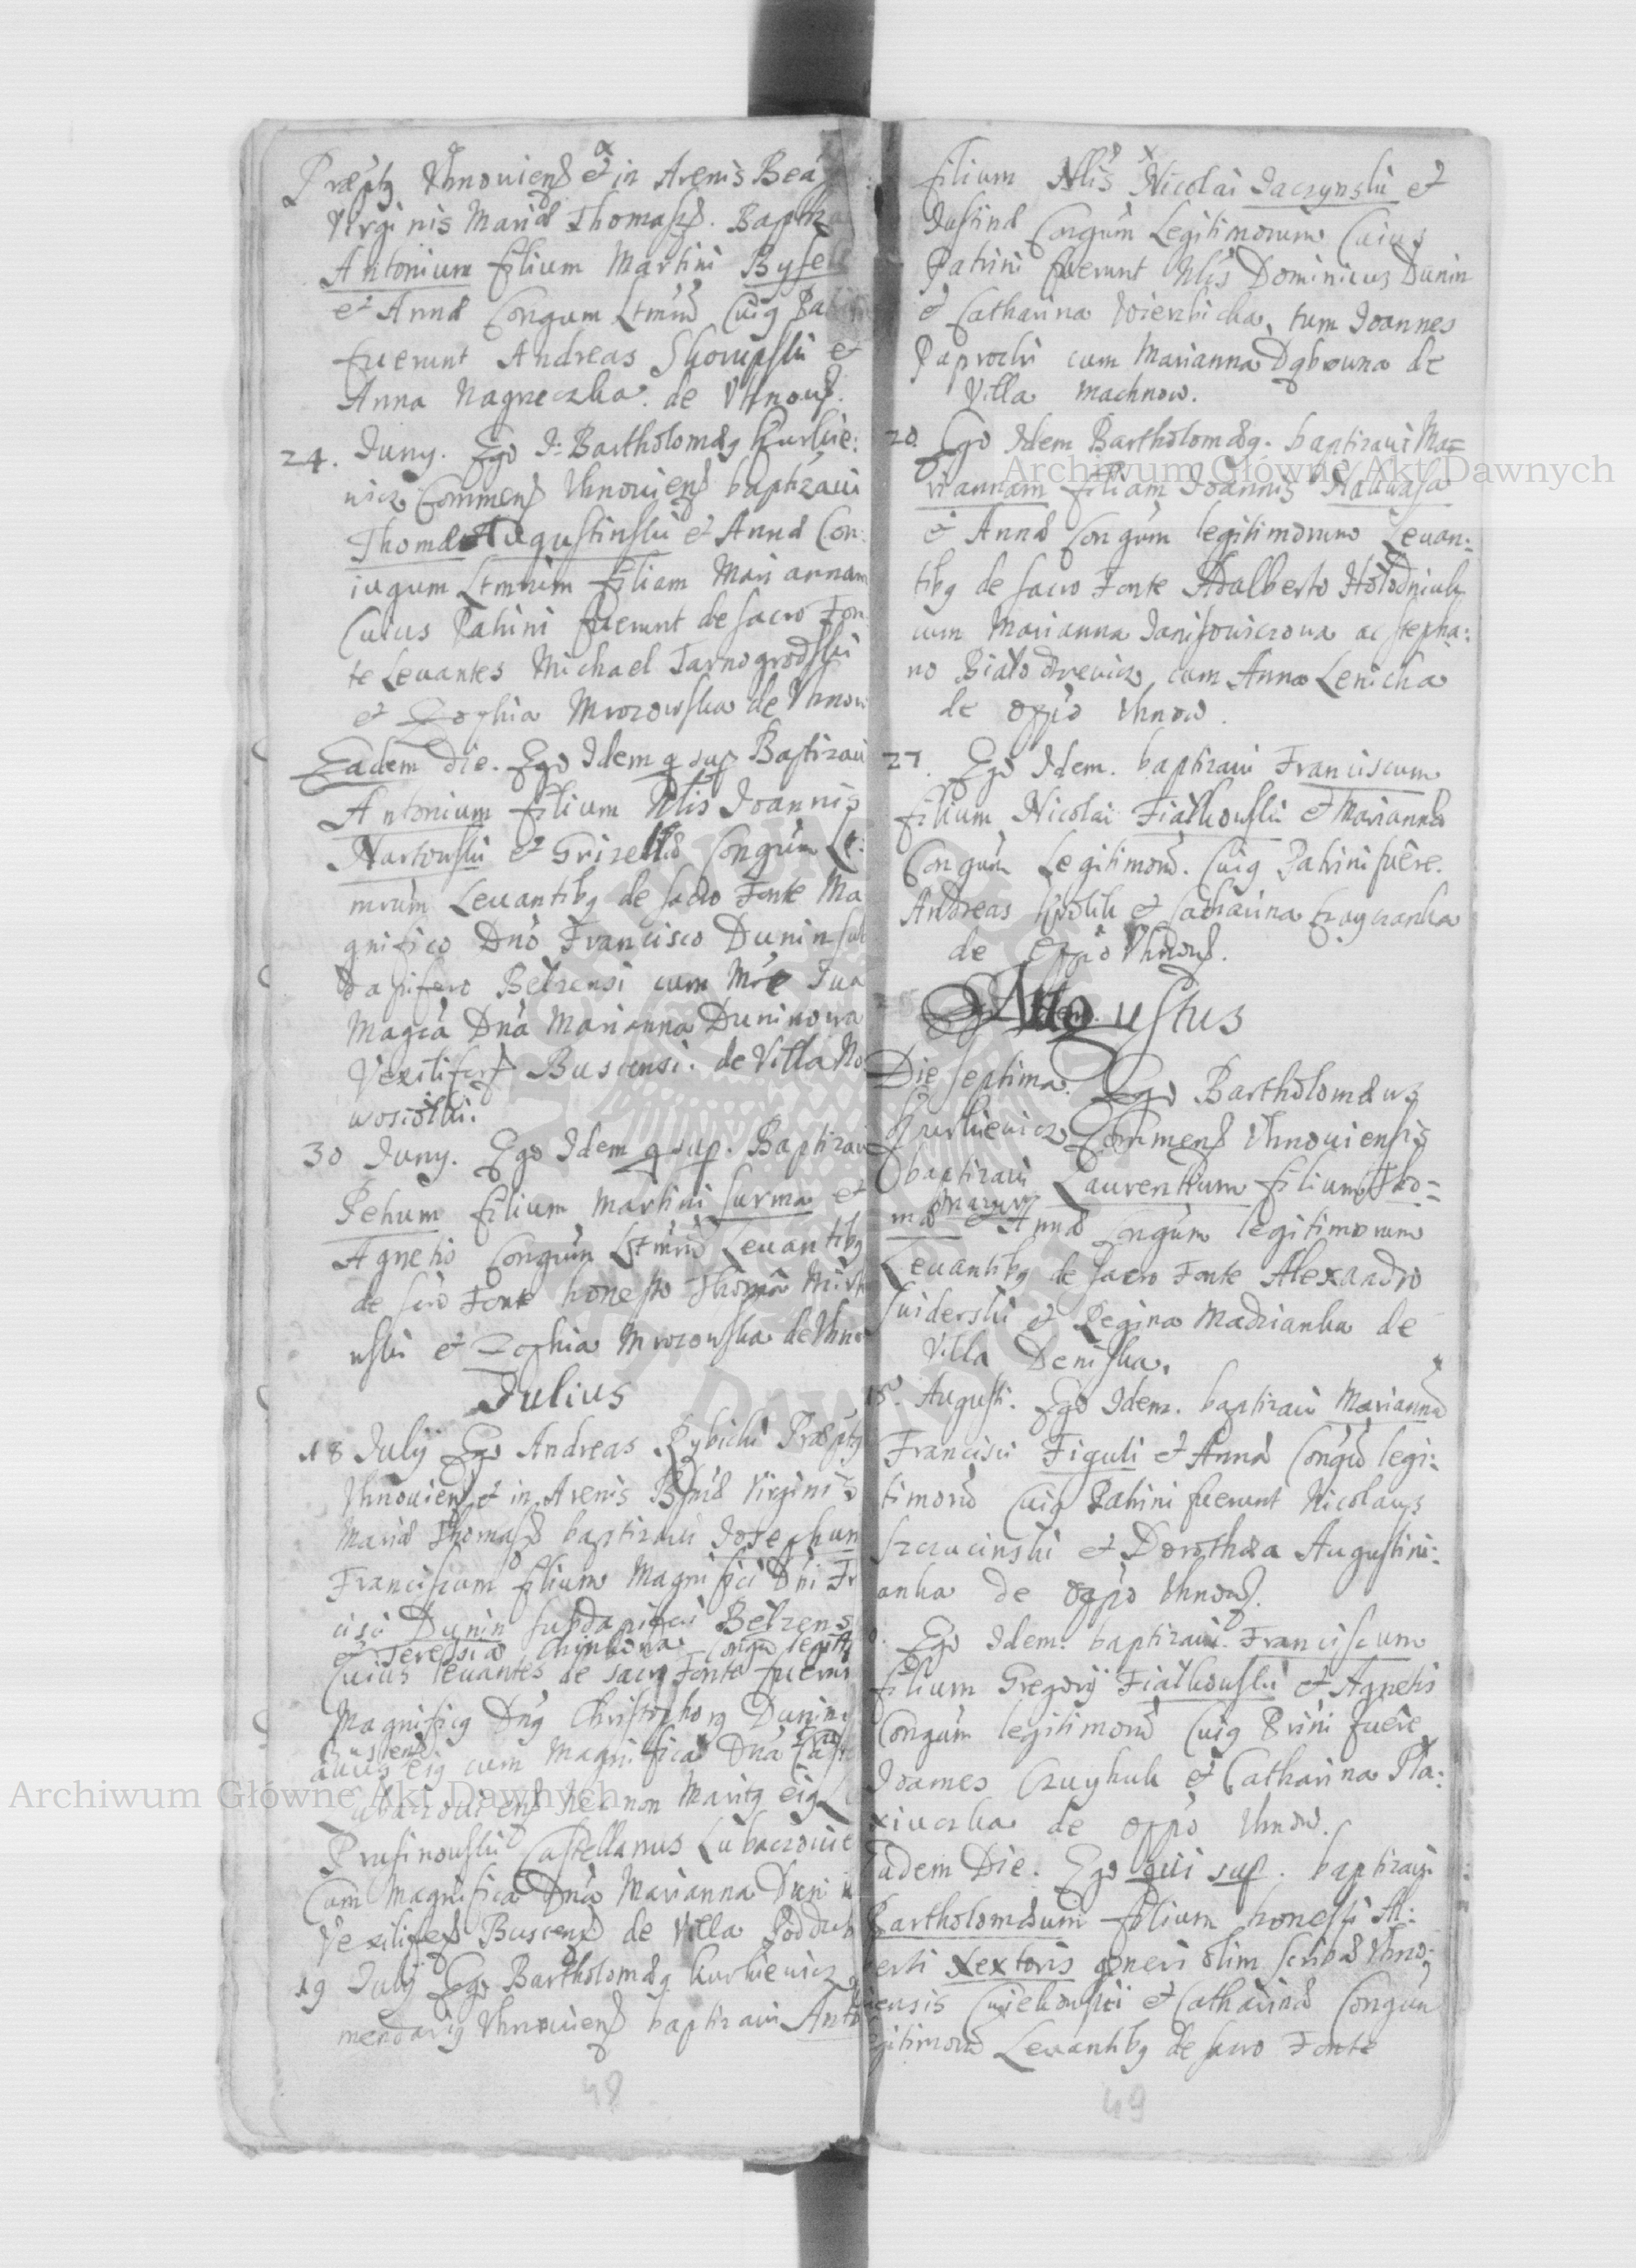 Præptg Vhnouiens et in Arenis Bea
Virginis Mariæ Thomass. Baptiza
Antonium filium Martini Bysek
et Annæ Congum Ltmũ Cuig Pat
fuerunt Andreas Skorupski et
Anna Nagneczka. de Vhnow.
24. Juny. Ego I. Bartholomæg Kurkie:
wicz Commens Vhnouiens baptizaui
Thomæ Augustinski et Annæ Con:
iugum Ltmrum filiam Mariannam
Cuius Patrini fuerunt de sacro Fon
te Leuantes Michael Tarnogrodski
et Zophia Mrozowska de Vhnow
Eadem Die. Ego Idem q sup Baptizaui
Antonium filium Nlis Joannis
Nartowski et Grizellæ Congũm Lt:
mrum Leuantibg de sacro Fonte Ma
gnifico Dno Francisco Dunin sub
dapifero Belzensi cum Mre sua
Magca Dna Marianna Duninowa
Vexilifers Buscensi. de Villa No
wosiołki.
30 Juny. Ego Idem q sup. Baptizaui
Petrum filium Martini Surma et
Agnetis Congũm Ltmrũ Leuantibg
de scro Fonte honesto Thoma
wski et Zophia Mrozowska de Vhno
Julius
18 Julij Ego Andreas Rybicki Præptg
Vhnouiens et in Arenis Bssmæ Virginis
Mariæ Thomass baptizaui Josephum
Franciscum filium Magnifici Dni Fr
cisci Dunin subdapiferi Belzens
et Teressiæ Congũ legit
Cuius leuantes de sacro Fonte fuerunt
Magnificg Dng Christophorg Dunin
Buscens
auus eig cum Magnifica Dna Cast
Lubaczouiens nec non Maritg eig
Prusinowski Castellanus Lubaczouie
Cum Magnifica Dna Marianna Dunin
Vexilifers Buscens de Villa Poddub
19 July Ego Bartholomæg Kurkiewicz
mendarig Vhnouiens baptizaui Anto
48
filium Nlis Nicolai Jaczynski et
Justinæ Congũm Legitimorum Cuius
Patrini fuerunt Nlis Dominicus Dunin
et Catharina Wierzbicka, tum Joannes
Paprocki cum Marianna Dąbowna de
Villa Machnow.
20. Ego Idem Bartholomæg. baptizaui Ma=
riannam filiam Joannis Nawłasa
et Annæ Congũm legitimorum Leuan:
tibg de sacro Fonte Adalberto Hołodniuk
cum Marianna Janisowiczowa ac Stepha:
no Białodrewicz, cum Anna Lenicka
de oppio Vhnow.
27. Ego Idem. baptizaui Franciscum
filium Nicolai Fiałkowski et Mariannæ
Congũm Legitimorũ. Cuig Patrini fuêre.
Andreas Krolik et Catharina
de oppio Vhnows.
Augustus
Die septima. Ego Bartholomæus
Kurkiewicz Commens Vhnouiensis
baptizaui Laurentium filium Tho=
mæ Mazurs et Annæ Congũm legitimorum
Leuantibg de sacro Fonte Alexandro
Swiderski et Regina Madzianka de
Villa Deniska.
15. Augusti. Ego Idem. baptizaui Mariannã
Francisci Figuli et Annæ Congũ legi:
timorũ Cuig Patrini fuerunt Nicolaus
Szczucinski et Dorothæa Augustini:
anka de oppio Vhnows.
Ego Idem. baptizaui. Franciscum
filium Gregorij Fiałkowski et Agnetis
Congũm legitimorũ Cuig Prini fuêre
Joannes Czuyhuk et Catharina Pta:
de oppo Vhnow.
Eadem Die. Ego qui sup. baptizaui
Bartholomæum filium honesti Al:
berti Textoris generi olim scribæ Vhno:
uiensis et Catharinæ Congũm
legitimorũ Leuantibg de sacro Fonte
49
Archiwum Główne Akt Dawnych
Archiwum Główne Akt Dawnych